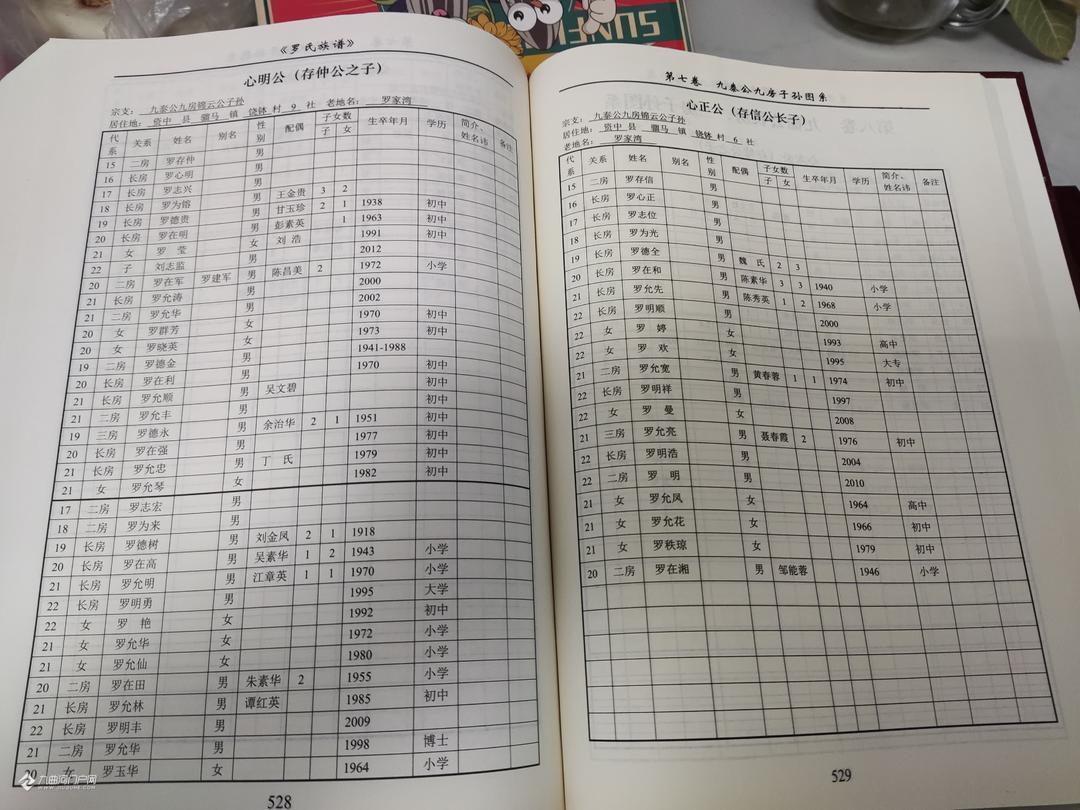 SUNFL
《罗氏族谱》
心明公（存仲公之子）
宗支： 九泰公九房锦云公子孙
居住地： 资中 县 骝马 镇 饶钵 村 9 社 老地名： 罗家湾
代系 关系 姓名 别名 性别 配偶 子女数 子 女 生卒年月 学历 简介、姓名讳 备注
15 二房 罗存仲 男
16 长房 罗心明 男
17 长房 罗志兴 男
18 长房 罗为镕 男 王金贵 3 2
19 长房 罗德贵 男 甘玉珍 2 1 1938 初中
20 长房 罗在明 男 彭素英 1 1963 初中
21 女 罗莹 女 刘浩 1991 初中
22 子 刘志监 男 2012
20 二房 罗在军 罗建军 男 陈昌美 2 1972 小学
21 长房 罗允涛 男 2000
21 二房 罗允华 男 2002
20 女 罗群芳 女 1970 初中
20 女 罗晓英 女 1973 初中
19 二房 罗德金 男 1941-1988
20 长房 罗在利 男 1970 初中
21 长房 罗允顺 男 吴文碧 初中
21 二房 罗允丰 男 初中
19 三房 罗德永 男 余治华 2 1 1951 初中
20 长房 罗在强 男 1977 初中
21 长房 罗允忠 男 丁氏 1979 初中
21 女 罗允琴 女 1982 初中
17 二房 罗志宏 男
18 二房 罗为来 男
19 长房 罗德树 男 刘金凤 2 1 1918
20 长房 罗在高 男 吴素华 1 2 1943 小学
21 长房 罗允明 男 江章英 1 1 1970 小学
22 长房 罗明勇 男 1995 大学
22 女 罗艳 女 1992 初中
21 女 罗允华 女 1972 小学
21 女 罗允仙 女 1980 小学
20 二房 罗在田 男 朱素华 2 1955 小学
21 长房 罗允林 男 谭红英 1985 初中
22 长房 罗明丰 男 2009
21 二房 罗允华 男 1998 博士
20 女 罗玉华 女 1964 小学
528
第七卷 九泰公九房子孙图系
心正公（存信公长子）
宗支： 九泰公九房锦云公子孙
居住地： 资中 县 骝马 镇 饶钵 村 6 社
老地名： 罗家湾
代系 关系 姓名 别名 性别 配偶 子女数 子 女 生卒年月 学历 简介、姓名讳 备注
15 二房 罗存信 男
16 长房 罗心正 男
17 长房 罗志位 男
18 长房 罗为光 男
19 长房 罗德全 男 魏氏 2 3
20 长房 罗在和 男 陈素华 3 3 1940 小学
21 长房 罗允先 男 陈秀英 1 2 1968 小学
22 长房 罗明顺 男 2000
22 女 罗婷 女 1993 高中
22 女 罗欢 女 1995 大专
21 二房 罗允宽 男 黄春蓉 1 1 1974 初中
22 长房 罗明祥 男 1997
22 女 罗曼 女 2008
21 三房 罗允亮 男 聂春霞 2 1976 初中
22 长房 罗明浩 男 2004
22 二房 罗明 男 2010
21 女 罗允凤 女 1964 高中
21 女 罗允花 女 1966 初中
21 女 罗秩琼 女 1979 初中
20 二房 罗在湘 男 邹能蓉 1946 小学
529
九曲河门户网